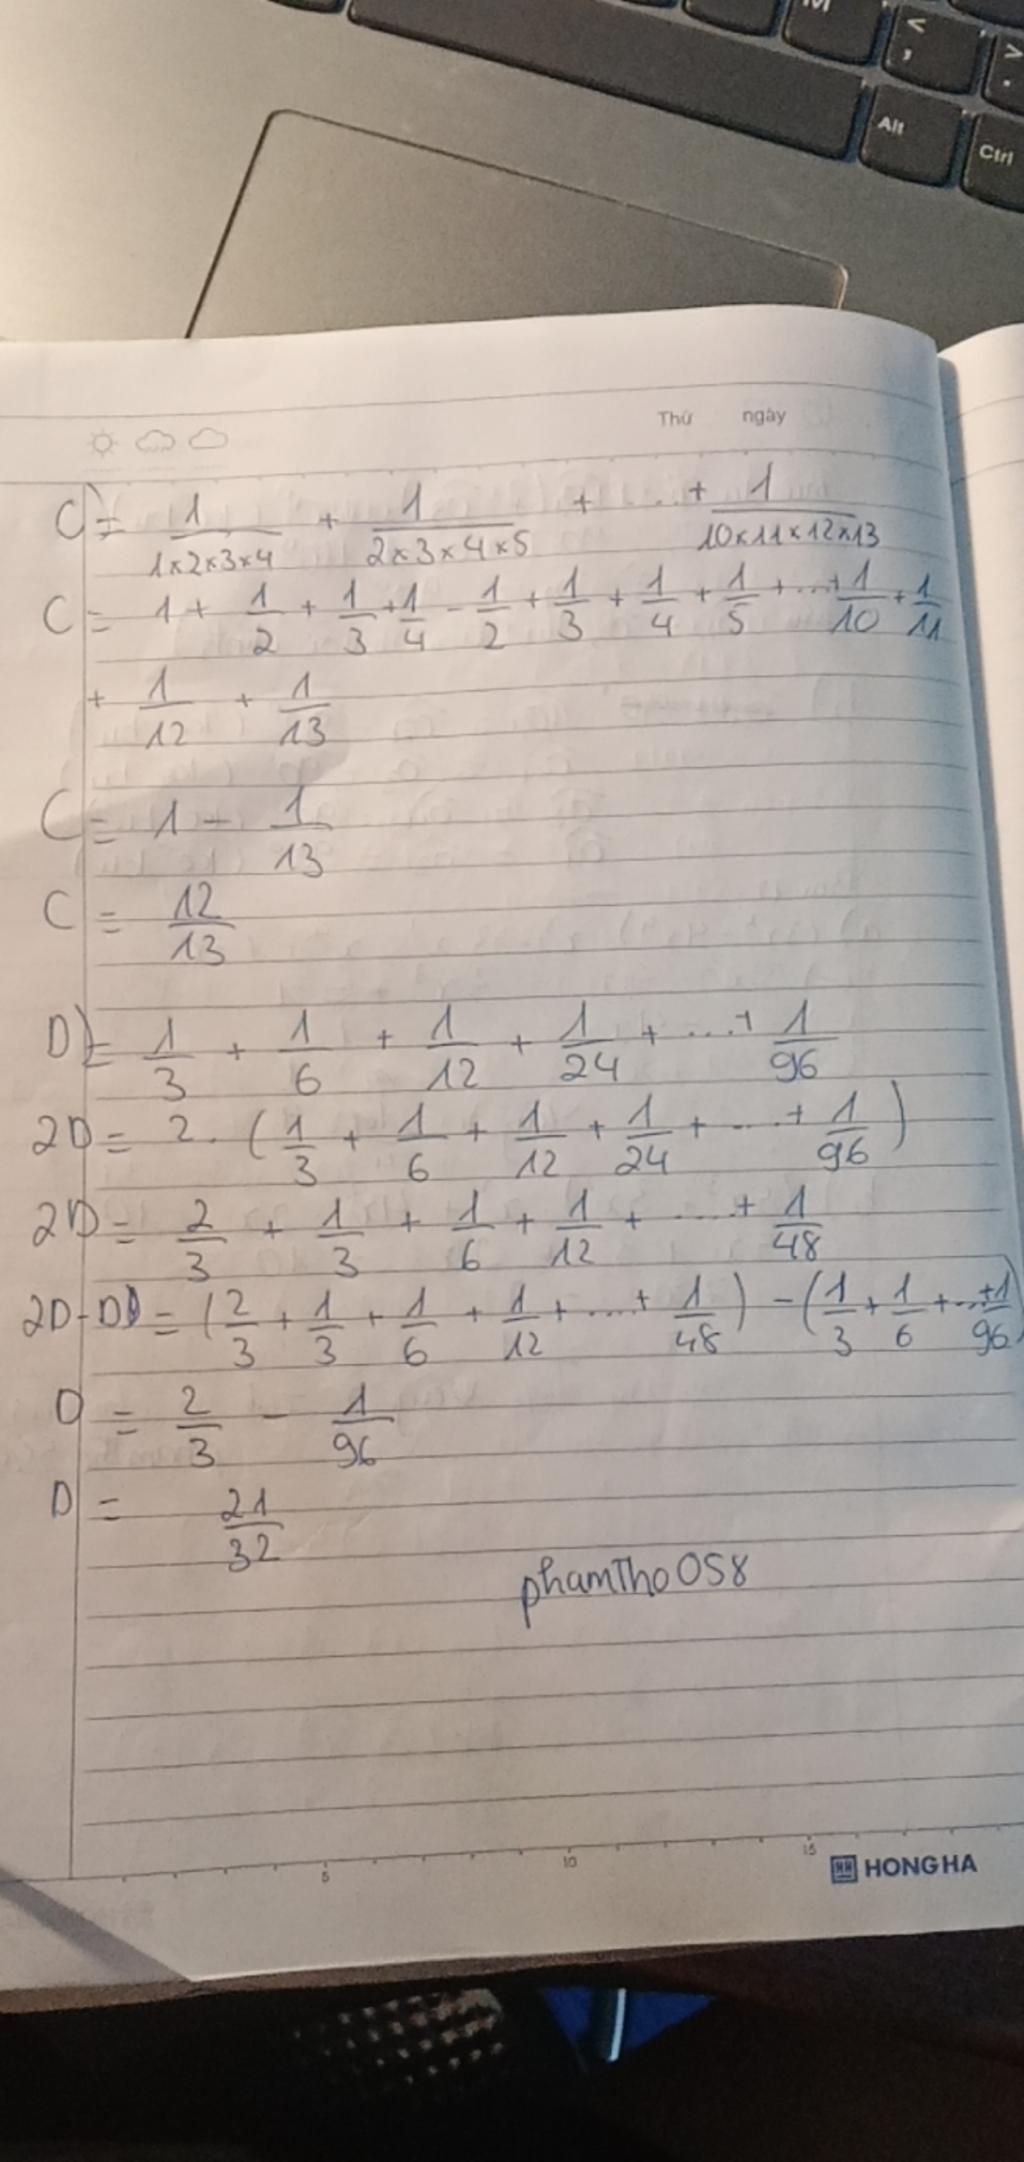 M < , > .
Alt
Ctrl
Thứ ngày
C) = 1/(1×2×3×4) + 1/(2×3×4×5) + .... + 1/(10×11×12×13)
C = 1 + 1/2 + 1/3 + 1/4 - 1/2 + 1/3 + 1/4 + 1/5 + ... + 1/10 + 1/11
+ 1/12 + 1/13
C = 1 - 1/13
C = 12/13
D) = 1/3 + 1/6 + 1/12 + 1/24 + .... + 1/96
2D = 2. (1/3 + 1/6 + 1/12 + 1/24 + .... + 1/96)
2D = 2/3 + 1/3 + 1/6 + 1/12 + .... + 1/48
2D - D = (2/3 + 1/3 + 1/6 + 1/12 + .... + 1/48) - (1/3 + 1/6 + ... + 1/96)
D = 2/3 - 1/96
D = 21/32
phamTho058
5 10 15
HONG HA